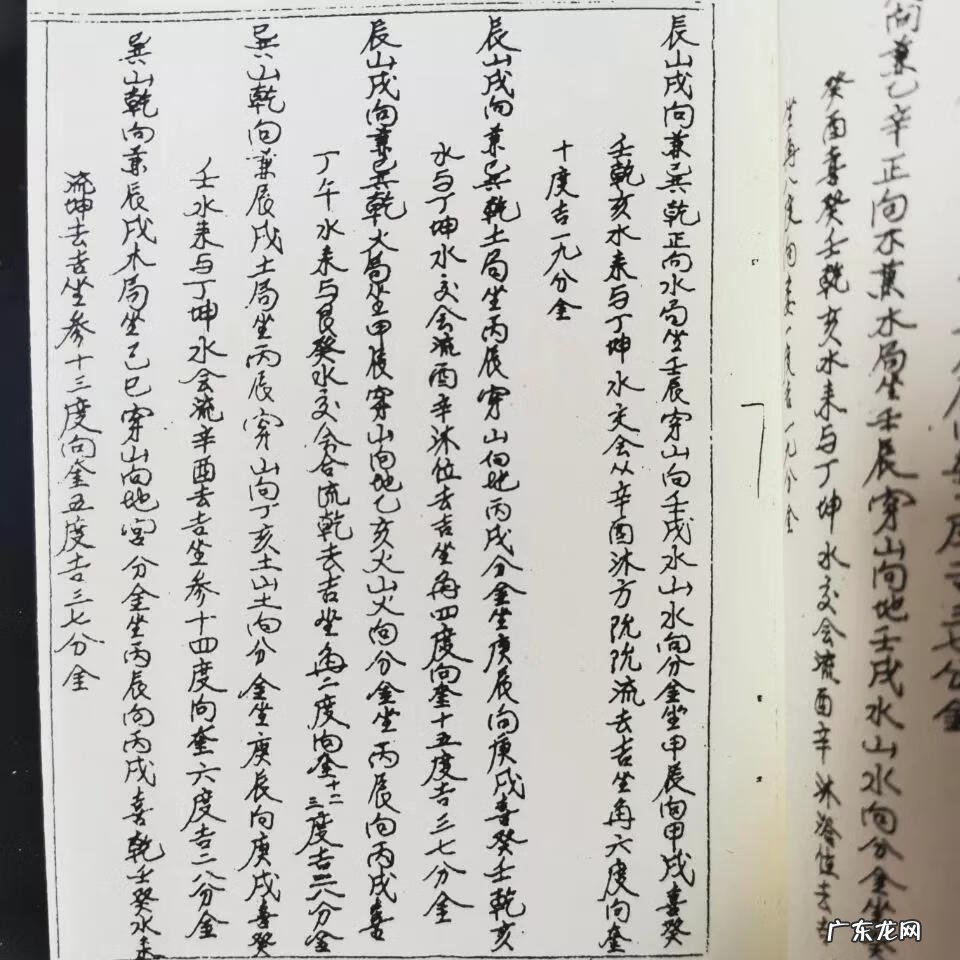 向兼乙辛正向水兼水局坐壬辰穿山向地壬戌水山水向分金坐
癸酉喜癸壬乾亥水来与丁坤水交会流酉辛沐浴位去吉
辰山戌向兼巽乾正向水局坐壬辰穿山向壬戌水山水向分金坐甲辰向甲戌喜癸
壬乾亥水来与丁坤水交会从辛酉沐方阮阮流去吉坐角六度向奎
十度吉一九分金
辰山戌向兼巽乾土局坐丙辰穿山向地丙戌分金坐庚辰向庚戌喜癸壬乾亥
水与丁坤水交会流酉辛沐位去吉坐角四度向奎十五度吉三七分金
辰山戌向兼巽乾火局坐甲辰穿山向地乙亥火山火向分金坐丙辰向丙戌喜
丁午水来与艮癸水交会合流乾去吉坐角二度向奎十二三度吉二八分金
巽山乾向兼辰戌土局坐丙辰穿山向丁亥土山土向分金坐庚辰向庚戌喜癸
壬水来与丁坤水会流辛酉去吉坐参十四度向奎六度吉二八分金
巽山乾向兼辰戌木局坐乙巳穿山向地宫分金坐丙辰向丙戌喜乾壬癸水来
流坤去吉坐参十三度向奎五度吉三七分金
广东龙网